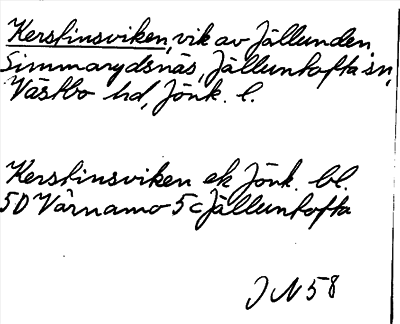 Kerstinsviken, vik av Jällunden,
Simmarydsnäs, Jälluntofta sn,
Västbo hd, Jönk. l.
Kerstinsviken ek Jönk. bl.
5D Värnamo 5c Jälluntofta
J N 58